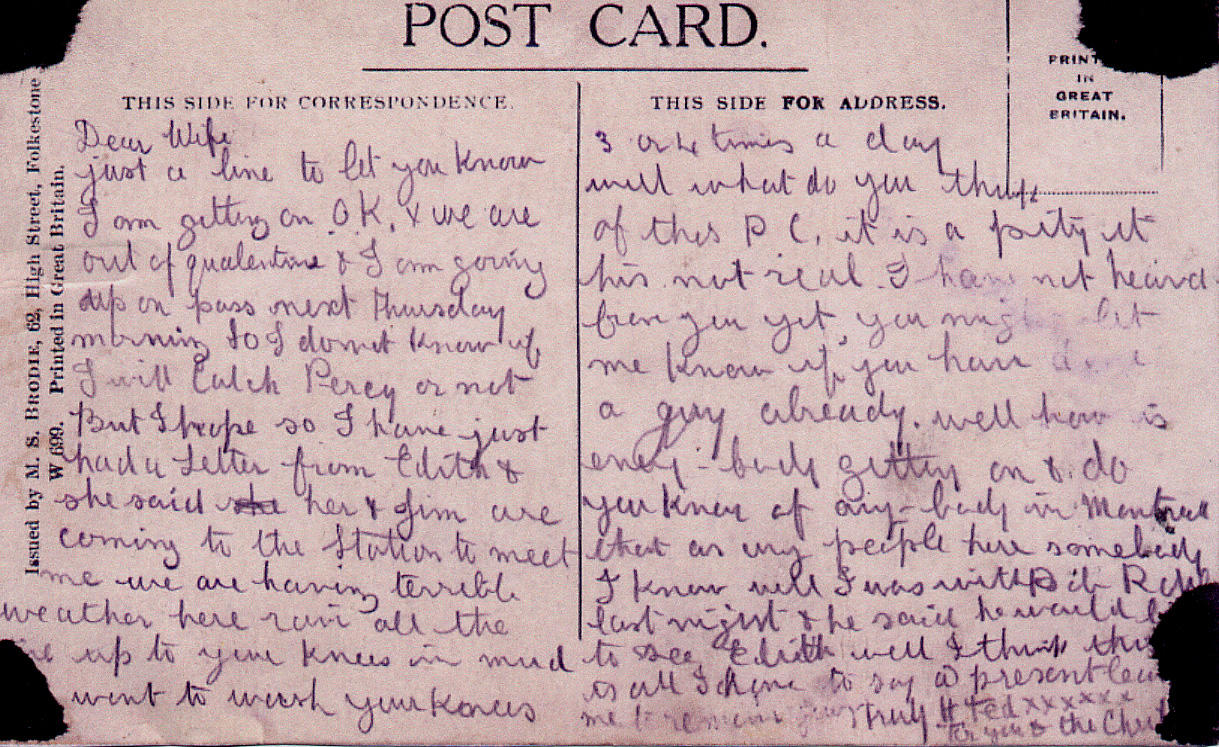 POST CARD.
THIS SIDE FOR CORRESPONDENCE.
Dear Wife
just a line to let you know
I am getting on O.K. & we are
out of qualentine & I am going
up on pass next Thursday
morning so I do not know if
I will catch Percy or not
But I hope so I have just
had a letter from Edith &
she said she her & Jim are
coming to the Station to meet
me we are having terrible
weather here rain all the
up to your knees in mud
want to wash your knees
THIS SIDE FOR ADDRESS.
3 or 4 times a day
well what do you think
of this P C, it is a pity it
his not real. I have not heard
from you yet, you might let
me know if you have
a guy already. well how is
eney-body getting on & do
you know of any-body in Montreal
that as any people here somebody
I know well I was with
last night & he said he would
to see Edith well I think this
is all I have to say @ present
me to remain yours truly Ted xxxxxx
for you & the
PRINT
IN
GREAT
BRITAIN.
Issued by M. S. BRODIE, 62, High Street, Folkestone
W 699. Printed in Great Britain.